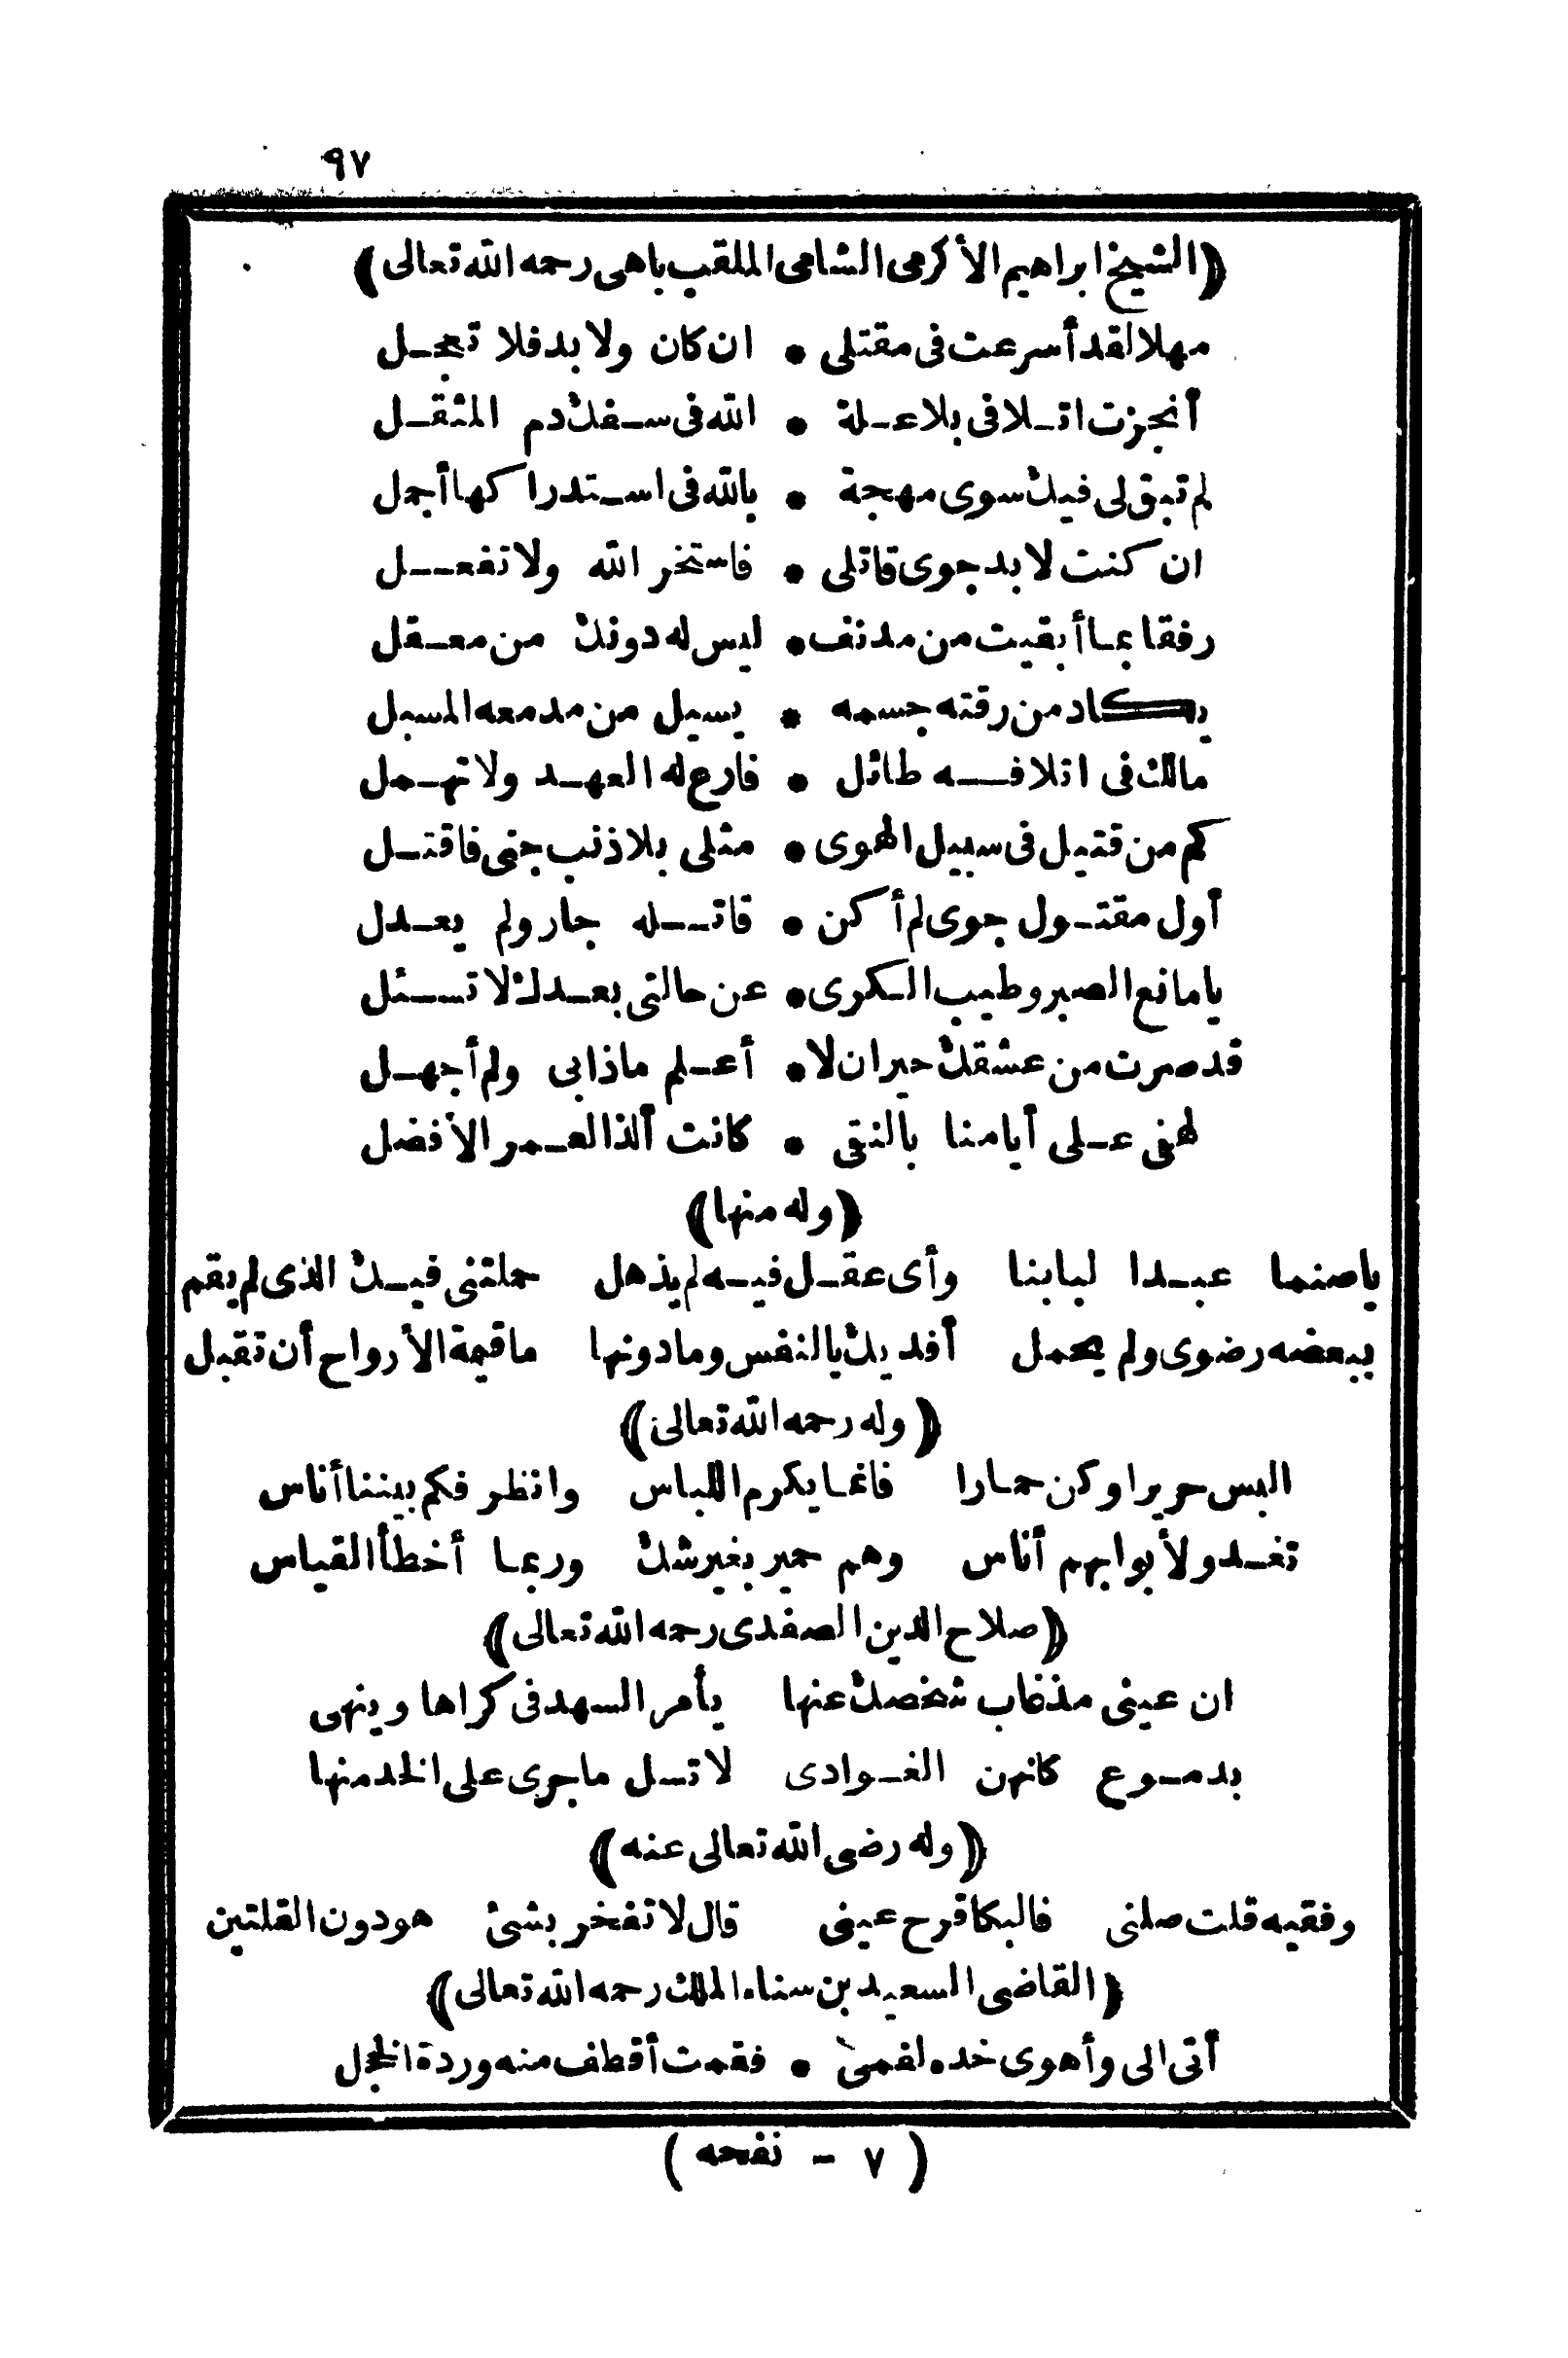 ٩٧
(الشيخ ابراهيم الأكرمى الشامى الملقب باهى رحمه الله تعالى)
مهلا لقد أسرعت فى مقتلى • ان كان ولا بد فلا تعجل
أنجزت اتلافى بلا علة • الله فى سفك دم المثقل
لم تبق لى فيك سوى مهجة • بالله فى استدراكها أجمل
ان كنت لا بد جوى قاتلى • فاستخر الله ولا تفعل
رفقا بما أبقيت من مدنف • ليس له دونك من معقل
يكاد من رقته جسمه • يسيل من مدمعه المسبل
مالك فى اتلافه طائل • فارع له العهد ولا تهمل
كم من قتيل فى سبيل الهوى • مثلى بلا ذنب جنى فاقتل
أول مقتول جوى لم أكن • قاتله جار ولم يعدل
يا مانع الصبر وطيب الكرى • عن حالتى بعدك لا تسئل
قد صرت من عشقك حيران لا • أعلم ماذا بى ولم أجهل
لهفى على أيامنا بالنقى • كانت ألذ العمر الأفضل
(وله منها)
ياصنما عبدا لبابنا وأى عقل فيه لم يذهل حملتنى فيك الذى لم يقم
ببعضه رضوى ولم يحمل أفديك بالنفس وما دونها ما قيمة الأرواح أن تقبل
(وله رحمه الله تعالى)
البس حريرا وكن حمارا فانما يكرم اللباس وانظر فكم بيننا أناس
تغدو لأبوابهم أناس وهم حمير بغير شك وربما أخطأ القياس
(صلاح الدين الصفدى رحمه الله تعالى)
ان عينى مذ غاب شخصك عنها يأمر السهد فى كراها وينهى
بدموع كانهن الغوادى لا تسل ما جرى على الخد منها
(وله رضى الله تعالى عنه)
وفقيه قلت صلنى فالبكا قرح عينى قال لا تفخر بشئ هو دون القلتين
(القاضى السعيد بن سناء الملك رحمه الله تعالى)
أتى الى وأهوى خده لفمى • فقمت أقطف منه وردة الخجل
(٧ - نفحه)